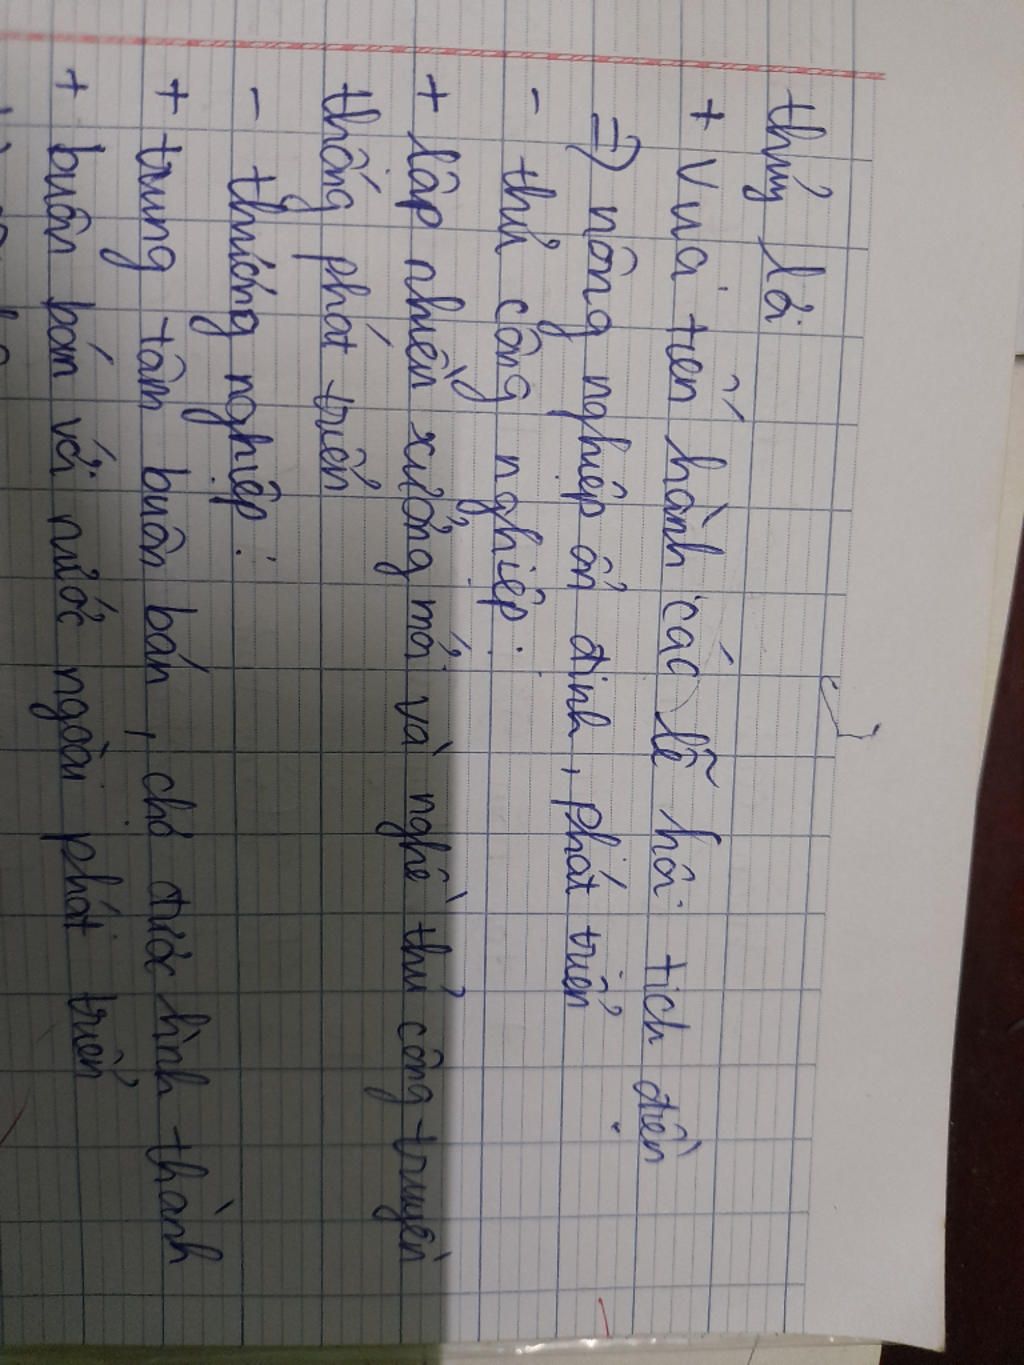 thủy lợi
+ Vua tiến hành các lễ hội tịch điền
⇒ nông nghiệp ổn định, phát triển
- thủ công nghiệp:
+ lập nhiều xưởng mới và nghề thủ công truyền
thống phát triển
- thương nghiệp:
+ trung tâm buôn bán, chợ được hình thành
+ buôn bán với nước ngoài phát triển